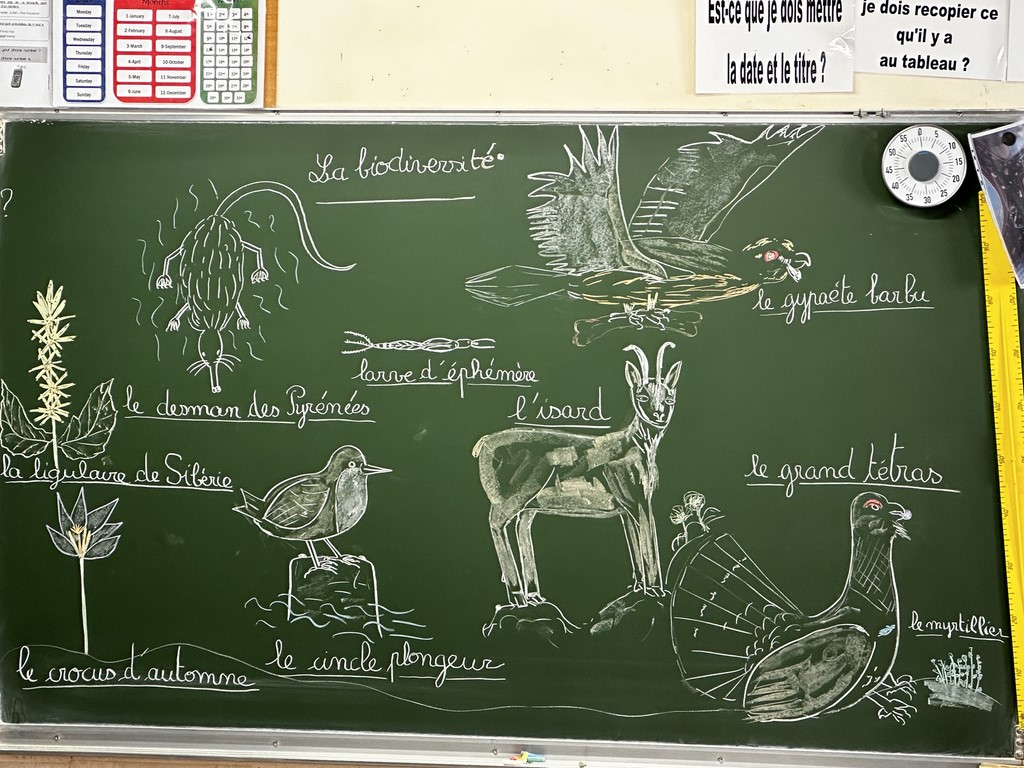 Months
Monday
Tuesday
Wednesday
Thursday
Friday
Saturday
Sunday
1-January
2-February
3-March
4-April
5-May
6-June
7-July
8-August
9-September
10-October
11-November
12-December
Est-ce que je dois mettre
la date et le titre ?
je dois recopier ce
qu'il y a
au tableau ?
La biodiversité
?
0
5
10
15
20
25
30
35
40
45
50
55
le gypaète barbu
larve d'éphémère
le desman des Pyrénées
l'isard
la ligulaire de Sibérie
le grand tétras
le myrtillier
le crocus d'automne
le cincle plongeur